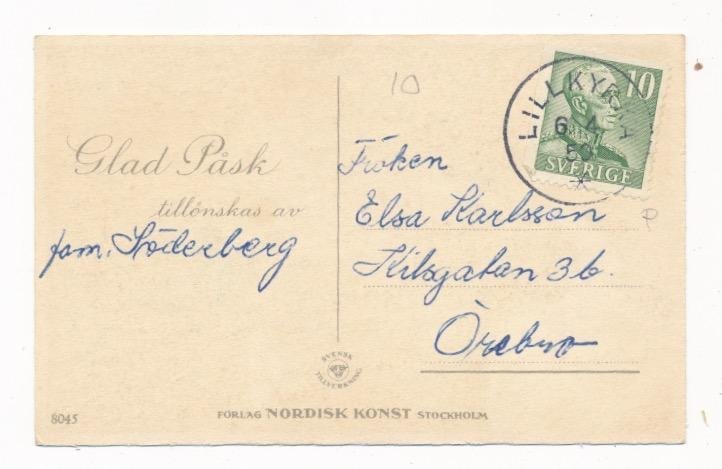 10
10
LILLKYRKA
6 4
50
SVERIGE
Glad Påsk
tillönskas av
fam. Söderberg
Fröken
Elsa Karlsson
Kilsgatan 3 b.
Örebro
P
SVENSK
TILLVERKNING
8045
FÖRLAG NORDISK KONST STOCKHOLM